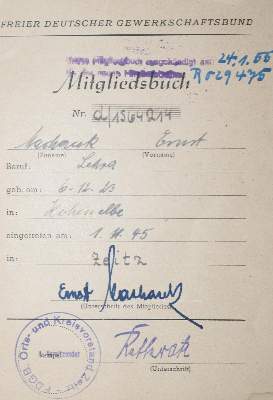 FREIER DEUTSCHER GEWERKSCHAFTSBUND
24.1.55
R 029475
Mitgliedsbuch
Nr. a/1564214
Machack Ernst
(Zuname) (Vorname)
Beruf: Lehrer
geb. am: 6.12.23
in: Hohenelbe
eingetreten am: 1.11.45
in: Zeitz
Ernst Machack
(Unterschrift des Mitgliedes)
FDGB Orts- und Kreisvorstand Zeitz
(Unterschrift)